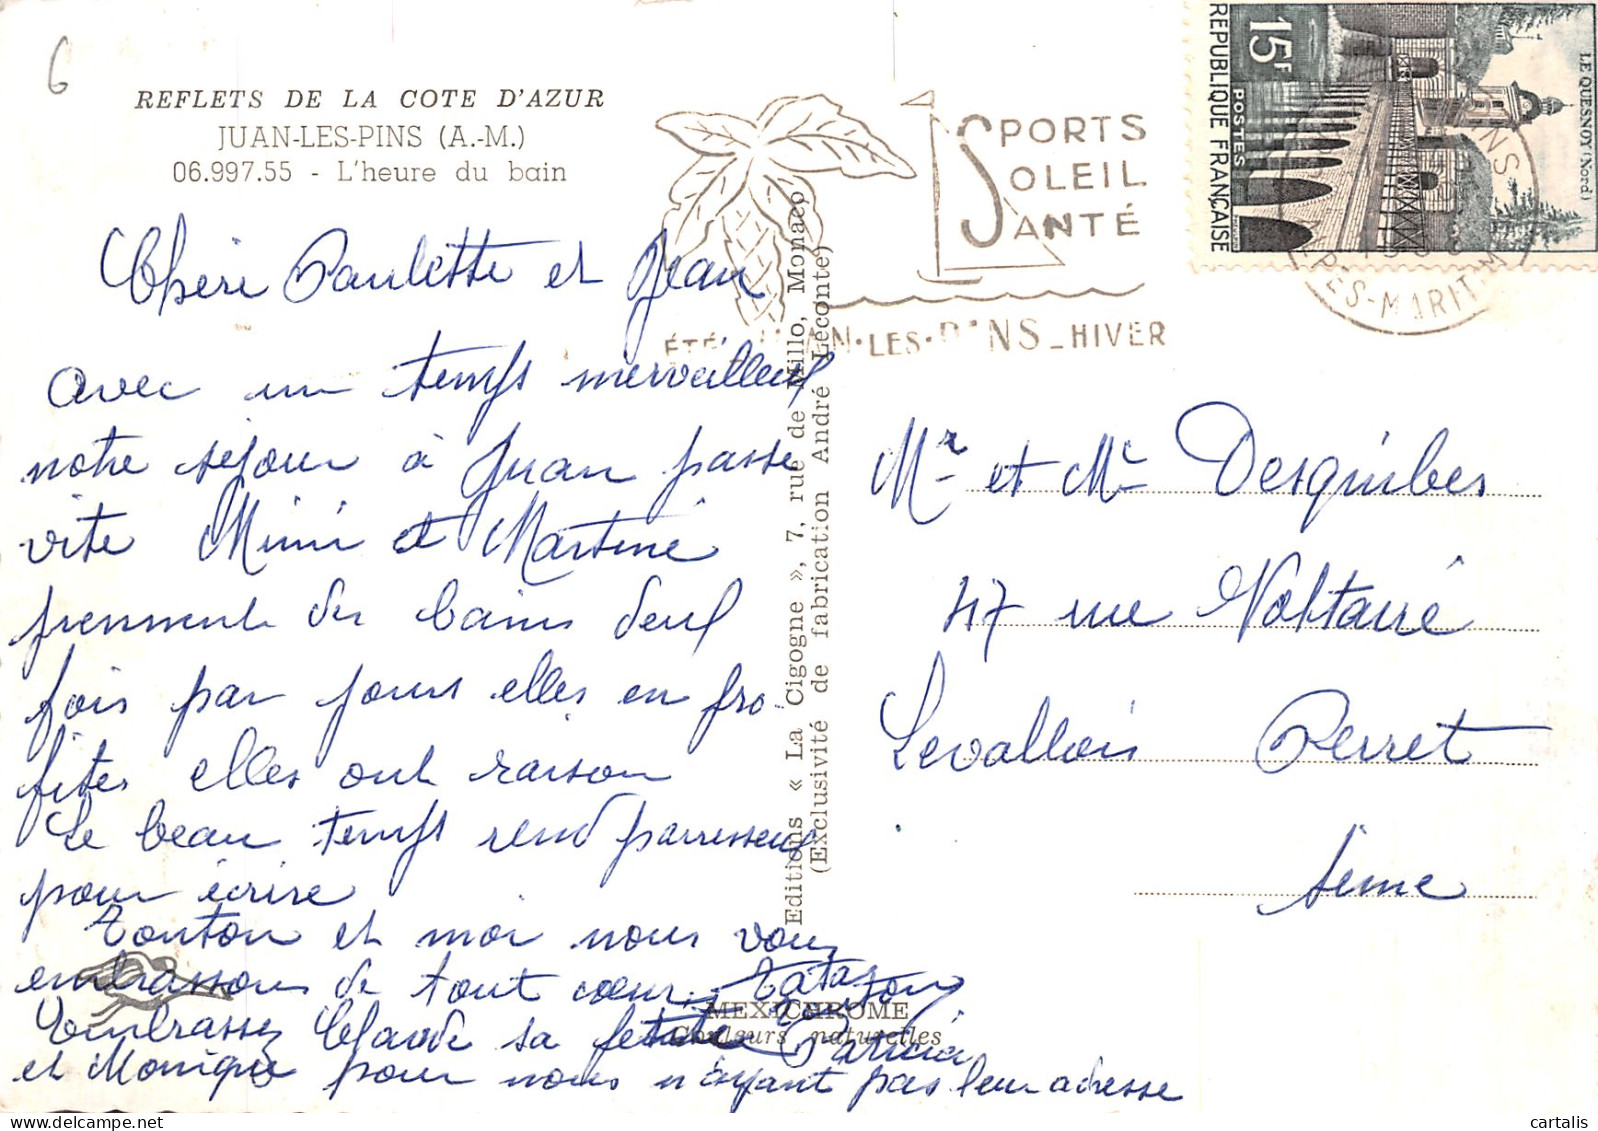 6
REFLETS DE LA COTE D'AZUR
JUAN-LES-PINS (A.-M.)
06.997.55 - L'heure du bain
SPORTS
SOLEIL
SANTÉ
ÉTÉ JUAN·LES·PINS_HIVER
15F
POSTES
REPUBLIQUE FRANÇAISE
LE QUESNOY (Nord)
PES-MARIT
Chère Paulette et Jean
avec un temps merveilleux
notre séjour à Juan passe
vite Mimi et Martine
prennent des bains deux
fois par jours elles en pro-
fites elles ont raison
Le beau temps rend parresseux
pour écrire
Tonton et moi nous vous
embrassons de tout cœur. Tata Tonton
Embrassez Claude sa petite Patricia
et Monique pour nous n'ayant pas leur adresse
Editions « La Cigogne », 7, rue de Millo, Monaco
(Exclusivité de fabrication André Leconte)
MEXICHROME
Couleurs naturelles
Mr et Me Desquibes
47 rue Voltaire
Levallois Perret
Seine
cartalis